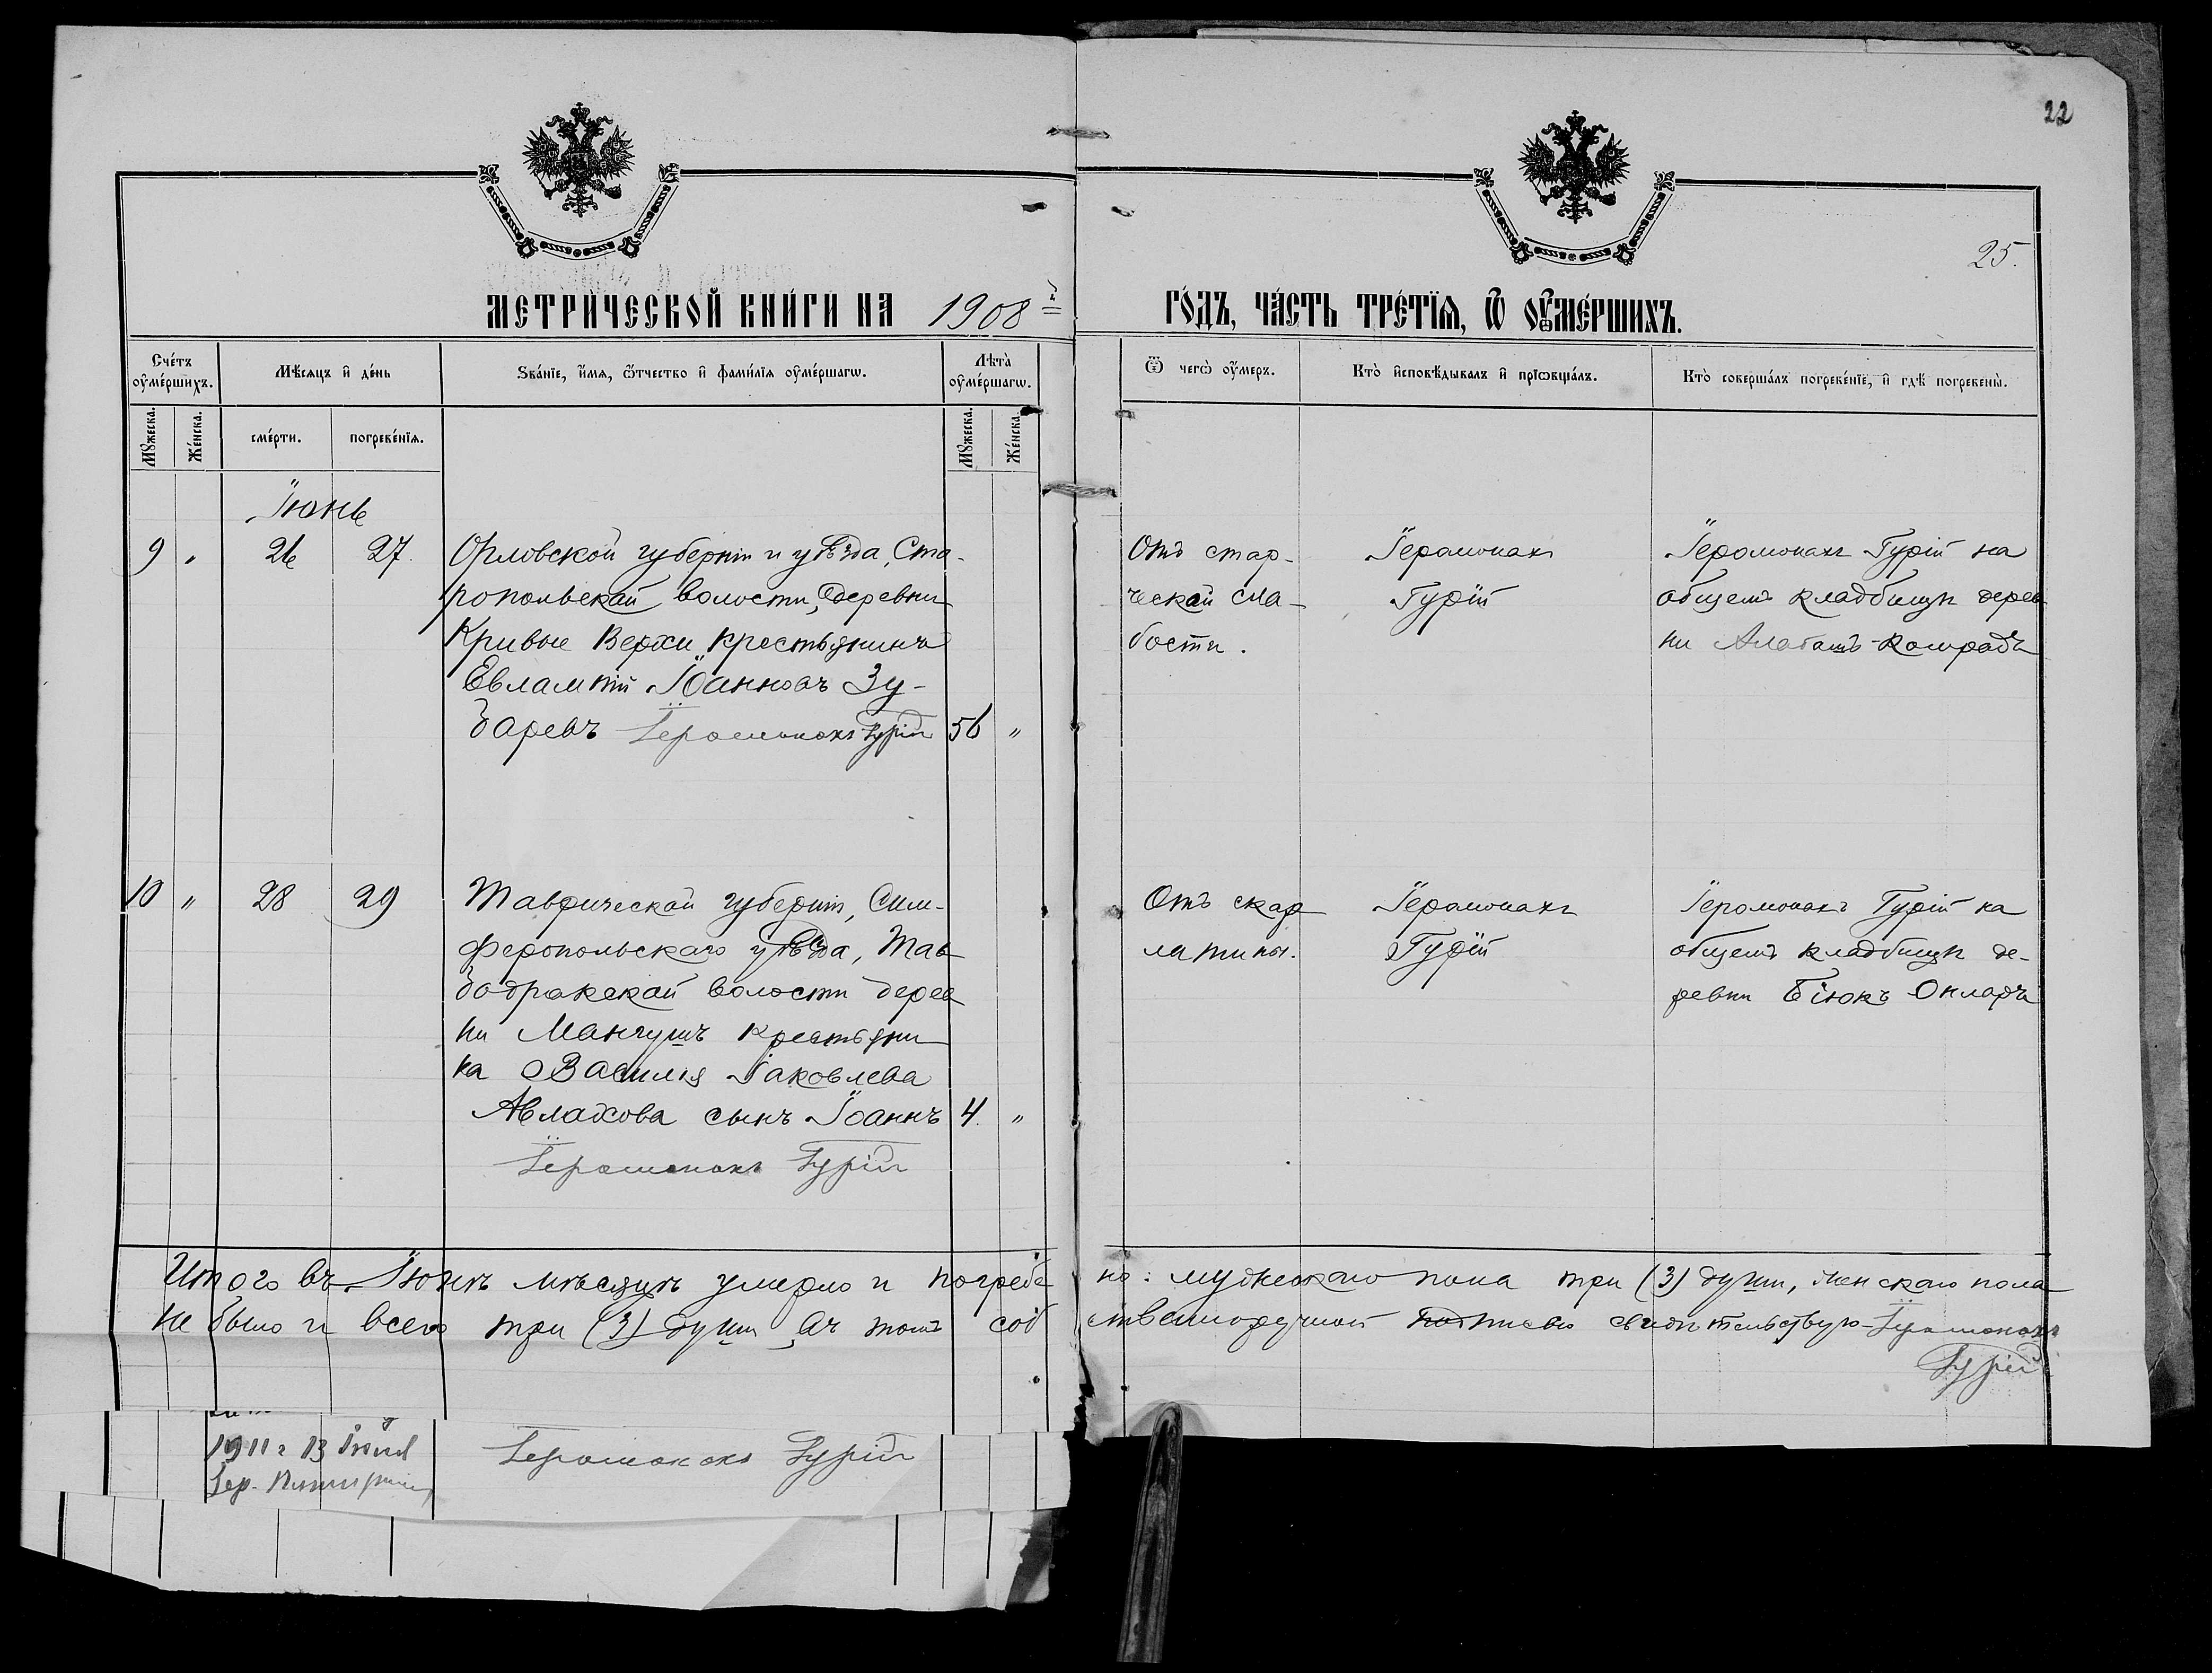 22
25.
МЕТРИ́ЧЕСКОЙ КНИ́ГИ НА 1908 й
ГО́ДЪ, ЧА́СТЬ ТРЕ́ТЇѦ, Ѡ ОУ҆МЕ́РШИХЪ.
Сче́тъ оу҆ме́ршихъ.
Мѣ́сѧцъ и҆ де́нь
Ѕва́нїе, и҆́мѧ, ѻ҆́тчество и҆ фами́лїѧ оу҆ме́ршагѡ.
Лѣ́та оу҆ме́ршагѡ.
Ѿ чегѡ̀ оу҆́меръ.
Кто̀ и҆сповѣ́дывалъ и҆ прїѡбща́лъ.
Кто̀ соверша́лъ погребе́нїе, и҆ гдѣ̀ погребены̀.
Мꙋ́жеска.
Же́нска.
сме́рти.
погребе́нїѧ.
Мꙋ́жеска.
Же́нска.
Іюнь
9 " 26 27.
Орловской губерніи и уѣзда, Ста-
ропольской волости, деревни
Кривые Верхи крестьянинъ
Евлампій Іоанновъ Зу-
баревъ Іеромонахъ Гурій 56 "
Отъ стар-
ческой сла-
бости.
Іеромонах
Гурій
Іеромонахъ Гурій на
общемъ кладбищѣ дерев
ни Алабашъ-Конрадъ
10 " 28 29
Таврической губерніи, Сим-
феропольскаго уѣзда, Тав
бодракской волости дерев
ни Мангушъ крестьяни
на Василія Іаковлева
Авлахова сынъ Іоаннъ 4. "
Іеромонахъ Гурій
Отъ скар
латины.
Іеромонахъ
Гурій
Іеромонахъ Гурій на
общемъ кладбищѣ де-
ревни Біюкъ Онларъ
Итого въ Іюнѣ мѣсяцѣ умерло и погребе но: мужескаго пола три (3) души, женскаго пола
не было и всего три (3) души, въ томъ соб ственноручной подписью свидѣтельствую Іеромонахъ
Гурій
1911 г 13
Іер.
Іеромонахъ Гурій